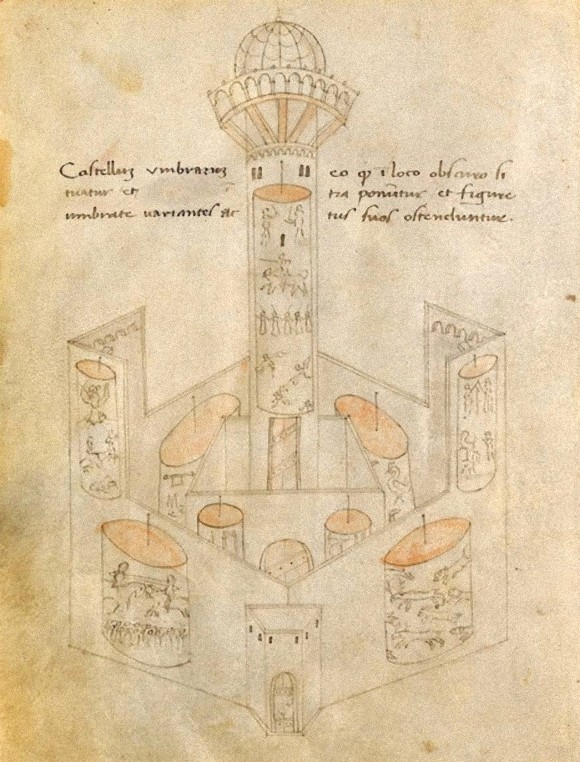 Castelluʒ vmbraruʒ eo ꝙ ī loco obscuro si
tuatur et ī tra ponūtur et figure
umbrate uariantes ac tus suos ostenduntur.